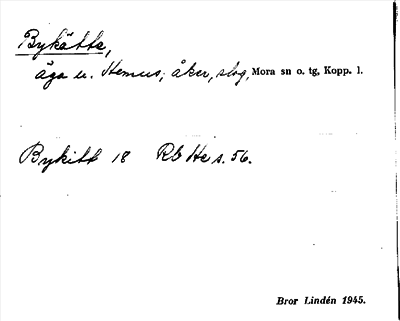 Bykätte,
äga u. Hemus; åker, slog, Mora sn o. tg, Kopp. l.
Bykitt 18 Rb He s. 56.
Bror Lindén 1945.